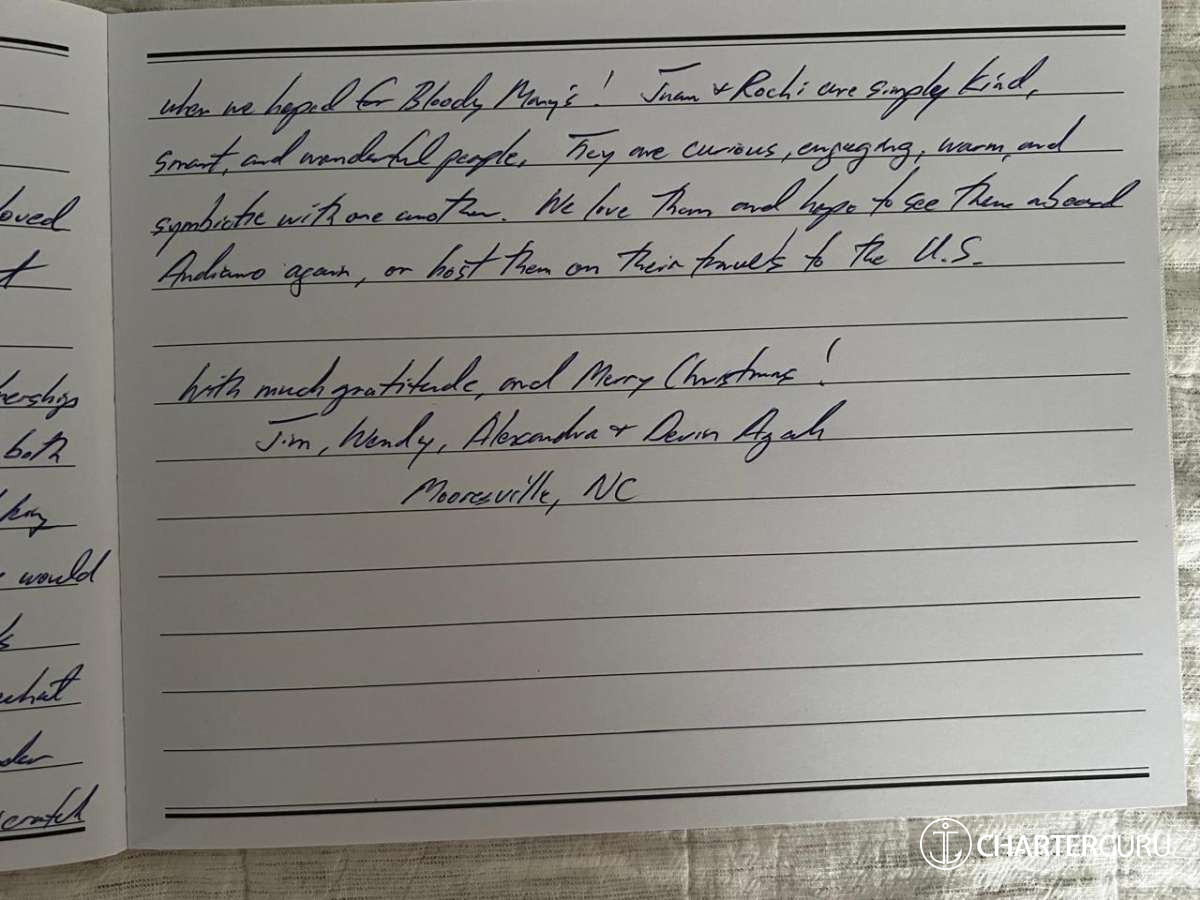 loved
t
nerships
both
king
would
ls
what
der
scratch
when we hoped for Bloody Mary's! Juan & Rochi are simply kind,
smart, and wonderful people. They are curious, engaging, warm, and
symbiotic with one another. We love them and hope to see them aboard
Andiamo again, or host them on their travels to the U.S.
With much gratitude, and Merry Christmas!
Jim, Wendy, Alexandra & Devin Azah
Mooresville, NC
CHARTERGURU